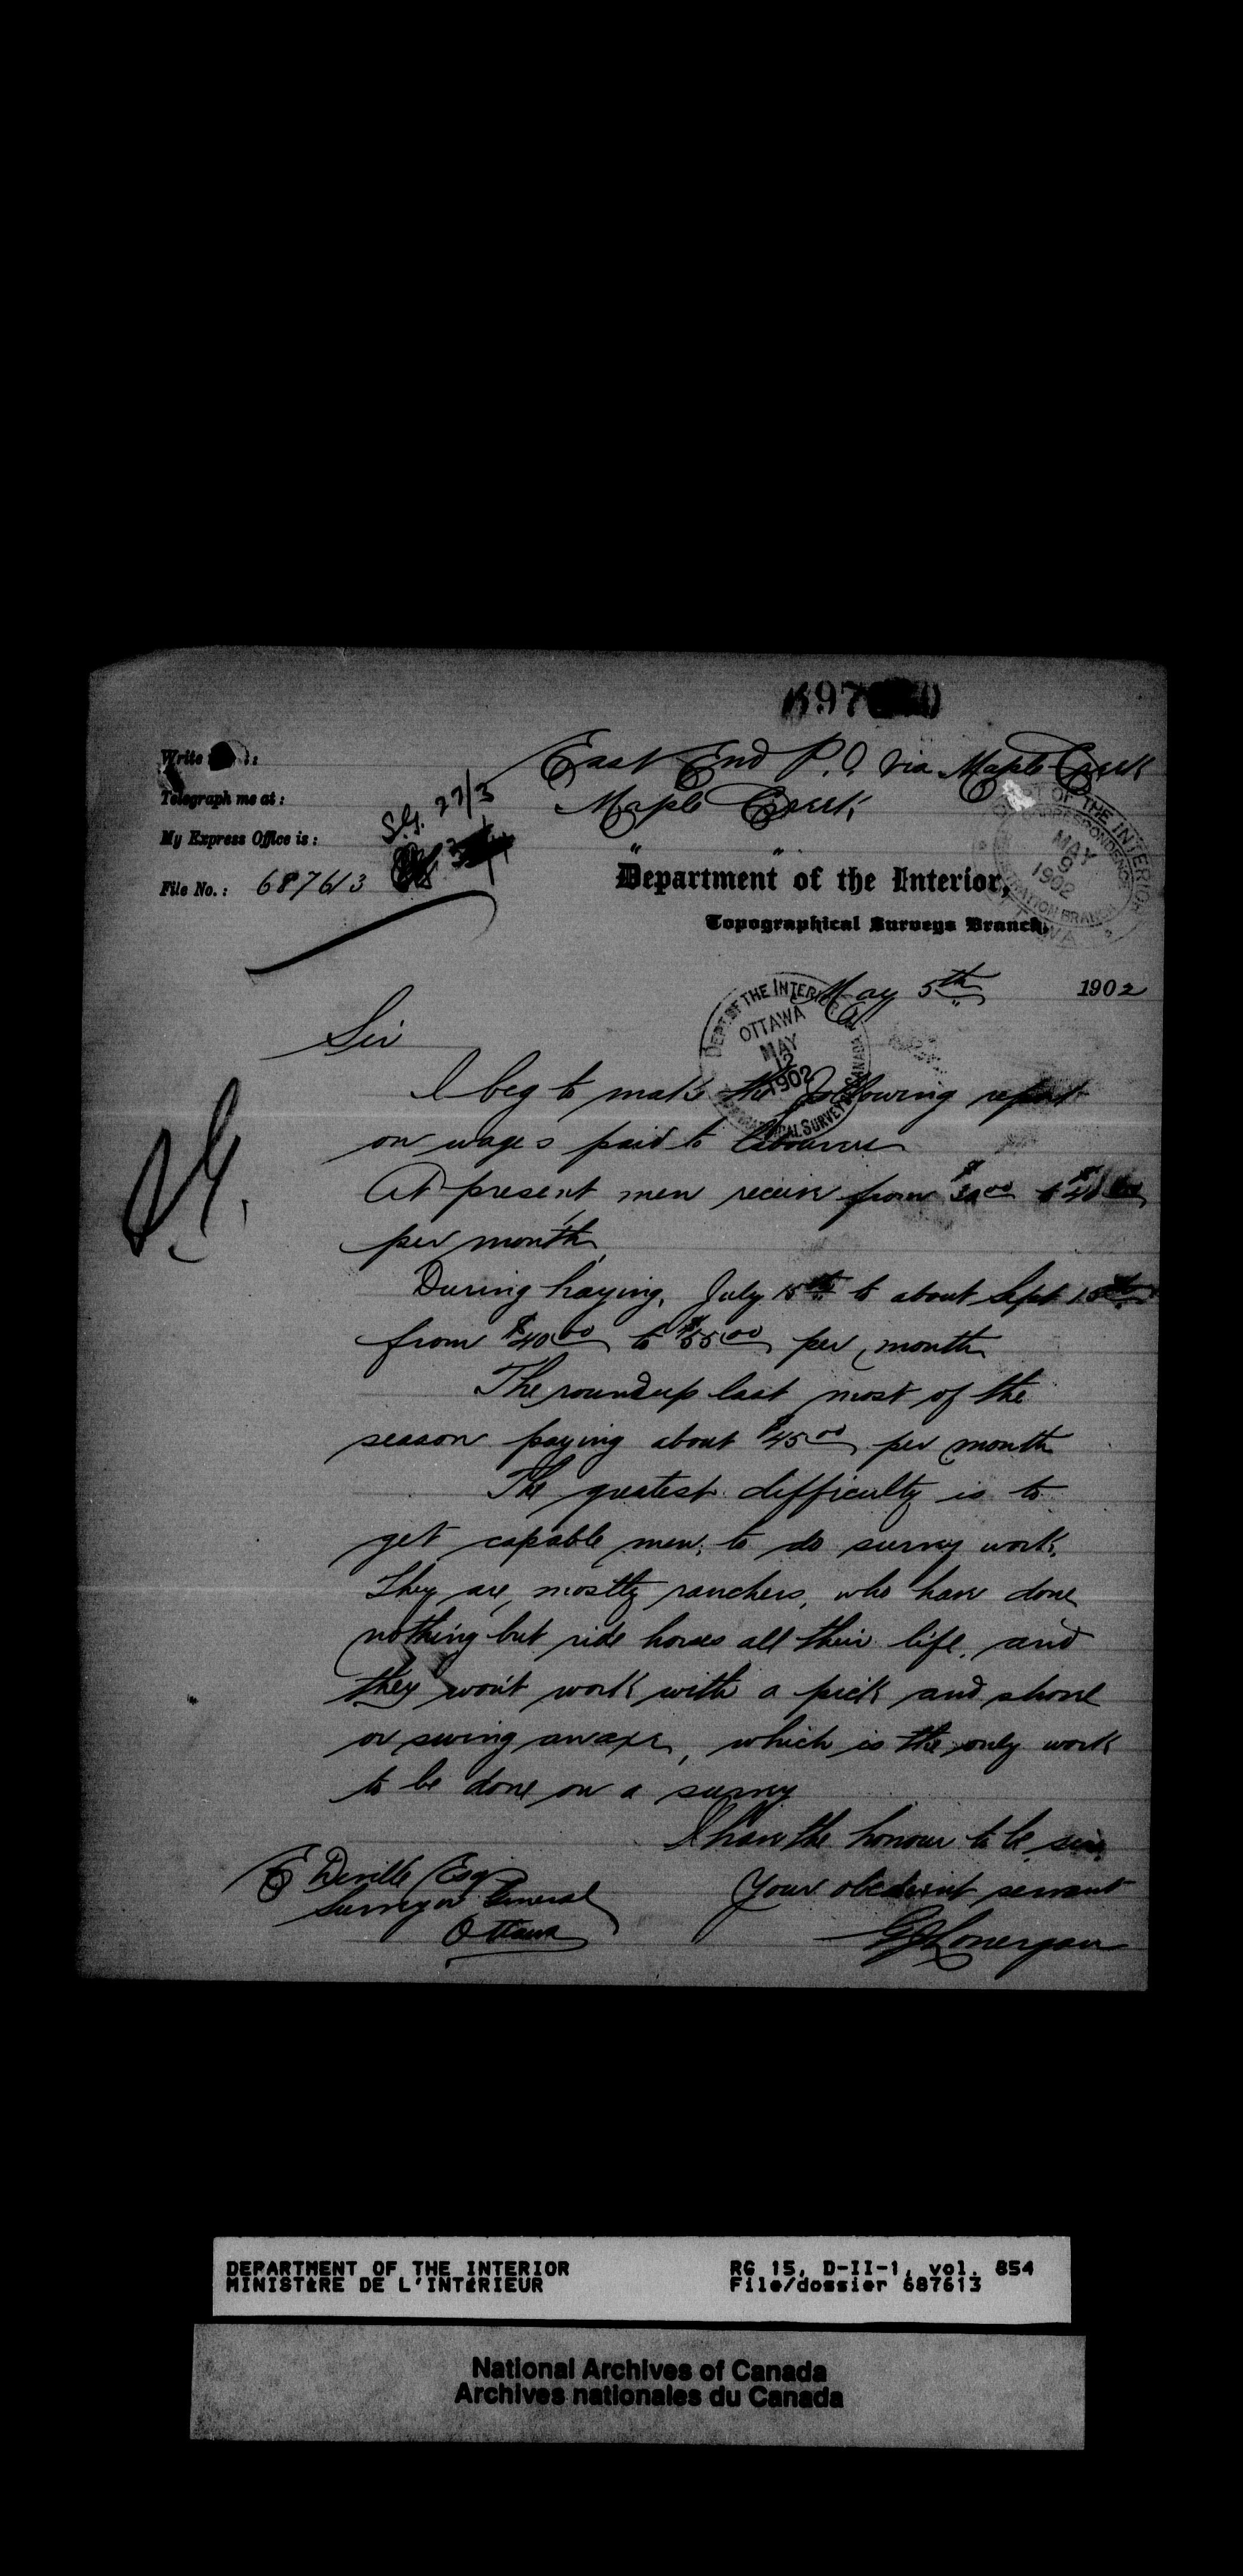 East End P.O. via Maple Creek
Write
Telegraph me at: Maple Creek
S.G. 27/3
My Express Office is:
File No.: 687613
Department of the Interior,
Topographical Surveys Branch,
DEPT OF THE INTERIOR
CORRESPONDENCE
MAY
9
1902
REGISTRATION BRANCH
OTTAWA
May 5th 1902
DEPT OF THE INTERIOR CANADA
OTTAWA
MAY
12
1902
TOPOGRAPHICAL SURVEYS
Sir
I beg to make the following report
on wages paid to labourers
At present men receive from to
per month,
During haying, July 15th to about Sept 15th
from $40 00 to $55 00 per month
The roundup last most of the
season paying about $45 00 per month
The greatest difficulty is to
get capable men, to do survey work,
They are, mostly ranchers, who have done
nothing but ride horses all their life, and
they won't work with a pick and shovel
or swing an axe, which is the only work
to be done on a survey
I have the honour to be sir,
Your obedient servant
GJ Lonergan
E Deville Esq
Surveyor General
Ottawa
DEPARTMENT OF THE INTERIOR RG 15, D-II-1, vol. 854
MINISTÈRE DE L'INTÉRIEUR File/dossier 687613
National Archives of Canada
Archives nationales du Canada